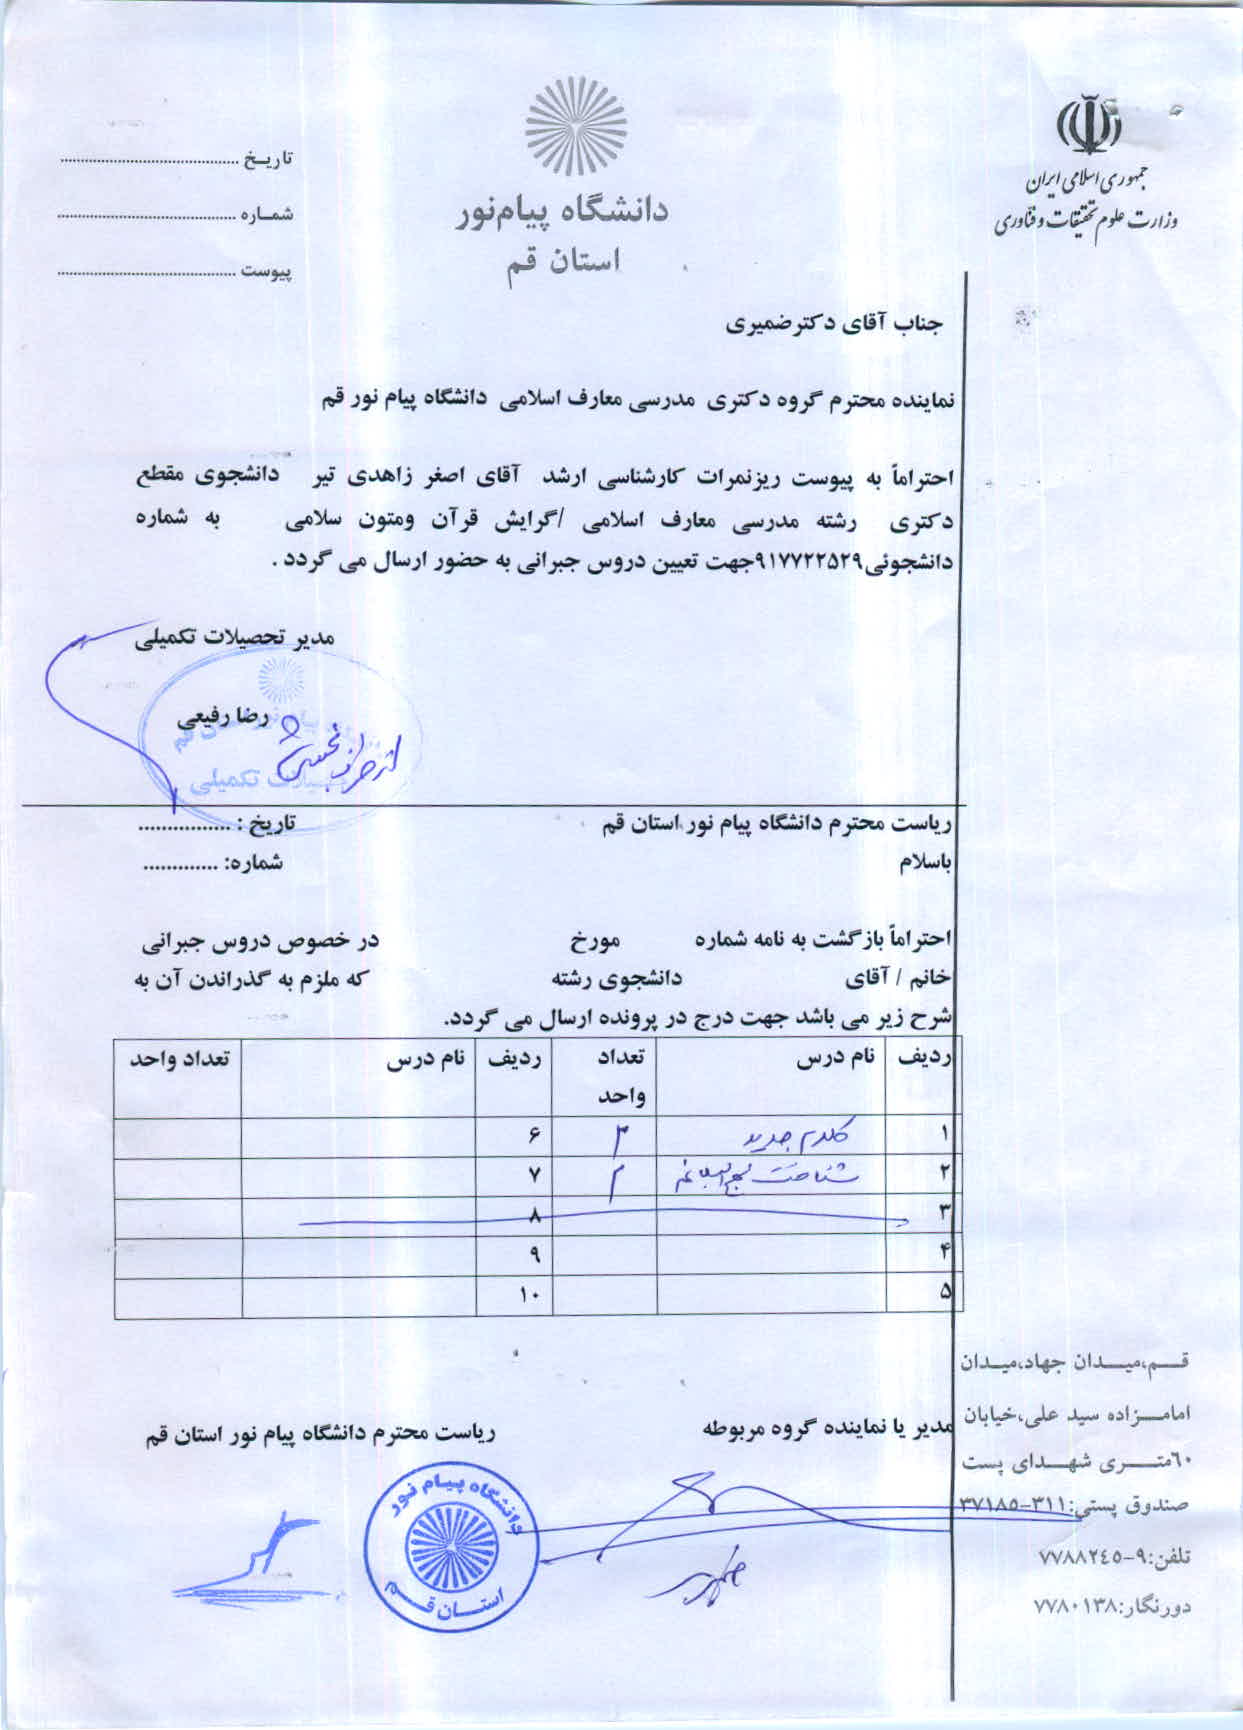 جمهوری اسلامی ایران
وزارت علوم تحقیقات و فناوری
دانشگاه پیام‌نور
استان قم
تاریـخ ............................................
شمـاره ............................................
پیوست ............................................
جناب آقای دکترضمیری
نماینده محترم گروه دکتری مدرسی معارف اسلامی دانشگاه پیام نور قم
احتراماً به پیوست ریزنمرات کارشناسی ارشد آقای اصغر زاهدی تیر دانشجوی مقطع
دکتری رشته مدرسی معارف اسلامی /گرایش قرآن ومتون سلامی به شماره
دانشجوئی۹۱۷۷۲۲۵۲۹جهت تعیین دروس جبرانی به حضور ارسال می گردد .
مدیر تحصیلات تکمیلی
رضا رفیعی
تحصیلات تکمیلی
ریاست محترم دانشگاه پیام نور استان قم تاریخ : ................
باسلام شماره: .............
احتراماً بازگشت به نامه شماره مورخ در خصوص دروس جبرانی
خانم / آقای دانشجوی رشته که ملزم به گذراندن آن به
شرح زیر می باشد جهت درج در پرونده ارسال می گردد.
ردیف نام درس تعداد واحد ردیف نام درس تعداد واحد
۱ کلام جدید ۲ ۶
۲ شناخت نهج البلاغه ۲ ۷
۳ ۸
۴ ۹
۵ ۱۰
مدیر یا نماینده گروه مربوطه ریاست محترم دانشگاه پیام نور استان قم
دانشگاه پیـام نور
استـان قـم
قـــم،میــدان جهاد،میـدان
امامـزاده سید علی،خیابان
۶۰متـــری شهــدای پست
صندوق پستی:۳۱۱-۳۷۱۸۵
تلفن:۹-۷۷۸۸۲۴۵
دورنگار:۷۷۸۰۱۳۸